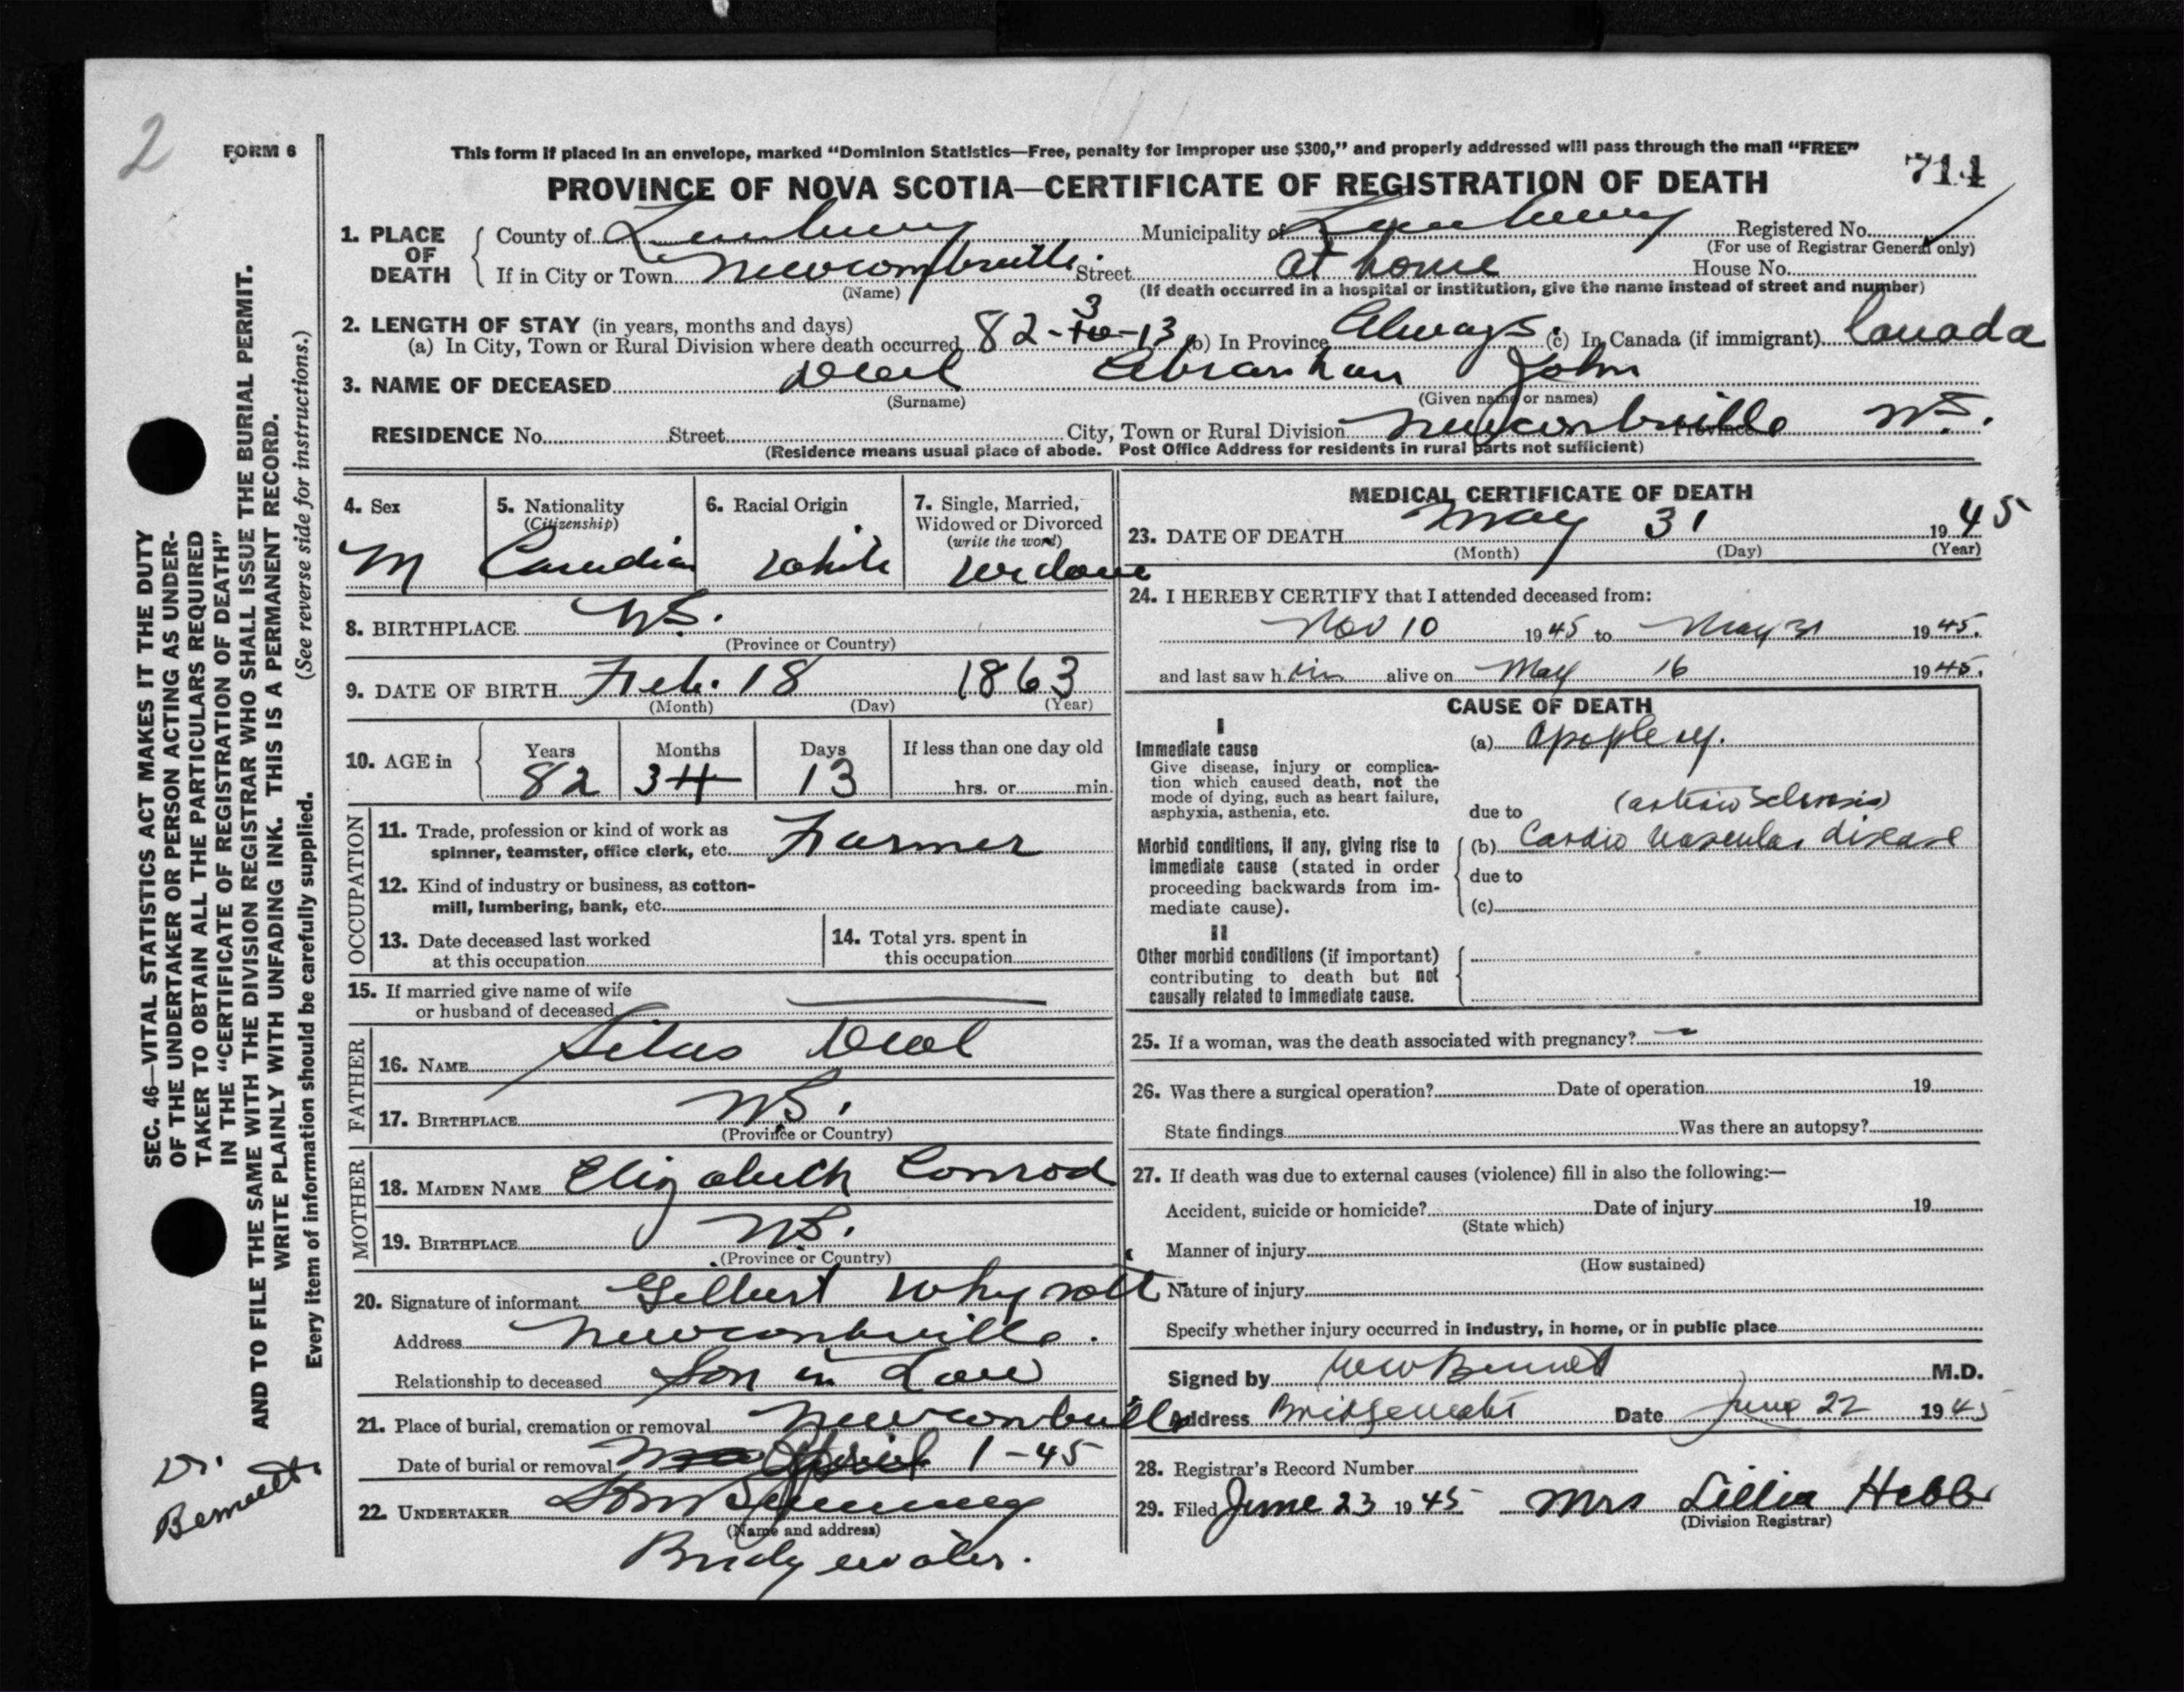 2
FORM 6
This form if placed in an envelope, marked "Dominion Statistics—Free, penalty for improper use $300," and properly addressed will pass through the mail "FREE"
714
PROVINCE OF NOVA SCOTIA—CERTIFICATE OF REGISTRATION OF DEATH
1. PLACE OF DEATH
County of Lunenburg Municipality of Lunenburg Registered No.
(For use of Registrar General only)
If in City or Town Newcombville Street at home House No.
(Name) (If death occurred in a hospital or institution, give the name instead of street and number)
2. LENGTH OF STAY (in years, months and days)
(a) In City, Town or Rural Division where death occurred 82-3-13 (b) In Province Always (c) In Canada (if immigrant) Canada
3. NAME OF DECEASED Deal Abraham John
(Surname) (Given name or names)
RESIDENCE No. Street City, Town or Rural Division Newcombville Province NS.
(Residence means usual place of abode. Post Office Address for residents in rural parts not sufficient)
4. Sex
M
5. Nationality
(Citizenship)
Canadian
6. Racial Origin
White
7. Single, Married,
Widowed or Divorced
(write the word)
8. BIRTHPLACE NS.
(Province or Country)
9. DATE OF BIRTH Feb. 18 1863
(Month) (Day) (Year)
10. AGE in
Years Months Days If less than one day old
82 3 13 hrs. or min.
OCCUPATION
11. Trade, profession or kind of work as
spinner, teamster, office clerk, etc. Farmer
12. Kind of industry or business, as cotton-
mill, lumbering, bank, etc.
13. Date deceased last worked
at this occupation
14. Total yrs. spent in
this occupation
15. If married give name of wife
or husband of deceased
FATHER
16. NAME Silas Deal
17. BIRTHPLACE NS.
(Province or Country)
MOTHER
18. MAIDEN NAME Elizabeth Conrod
19. BIRTHPLACE NS.
(Province or Country)
20. Signature of informant Gilbert Whynott
Address Newcombville.
Relationship to deceased Son in Law
21. Place of burial, cremation or removal Newcombville
Date of burial or removal 1-45
22. UNDERTAKER
(Name and address)
Bridgewater.
MEDICAL CERTIFICATE OF DEATH
23. DATE OF DEATH May 31 1945
(Month) (Day) (Year)
24. I HEREBY CERTIFY that I attended deceased from:
Nov 10 1945 to May 31 1945.
and last saw h im alive on May 16 1945.
CAUSE OF DEATH
I
Immediate cause
Give disease, injury or complica-
tion which caused death, not the
mode of dying, such as heart failure,
asphyxia, asthenia, etc.
(a) Apoplexy.
due to (arterio sclerosis)
Morbid conditions, if any, giving rise to
immediate cause (stated in order
proceeding backwards from im-
mediate cause).
(b) Cardio vascular disease
due to
(c)
II
Other morbid conditions (if important)
contributing to death but not
causally related to immediate cause.
25. If a woman, was the death associated with pregnancy? —
26. Was there a surgical operation? Date of operation 19
State findings Was there an autopsy?
27. If death was due to external causes (violence) fill in also the following:—
Accident, suicide or homicide? Date of injury 19
(State which)
Manner of injury
(How sustained)
Nature of injury
Specify whether injury occurred in industry, in home, or in public place
Signed by Bennett M.D.
Address Bridgewater Date June 22 1945
28. Registrar's Record Number
29. Filed June 23 1945 Mrs Lillia Hebb
(Division Registrar)
SEC. 46—VITAL STATISTICS ACT MAKES IT THE DUTY
OF THE UNDERTAKER OR PERSON ACTING AS UNDER-
TAKER TO OBTAIN ALL THE PARTICULARS REQUIRED
IN THE "CERTIFICATE OF REGISTRATION OF DEATH"
AND TO FILE THE SAME WITH THE DIVISION REGISTRAR WHO SHALL ISSUE THE BURIAL PERMIT.
WRITE PLAINLY WITH UNFADING INK. THIS IS A PERMANENT RECORD.
Every item of information should be carefully supplied. (See reverse side for instructions.)
Dr.
Bennett